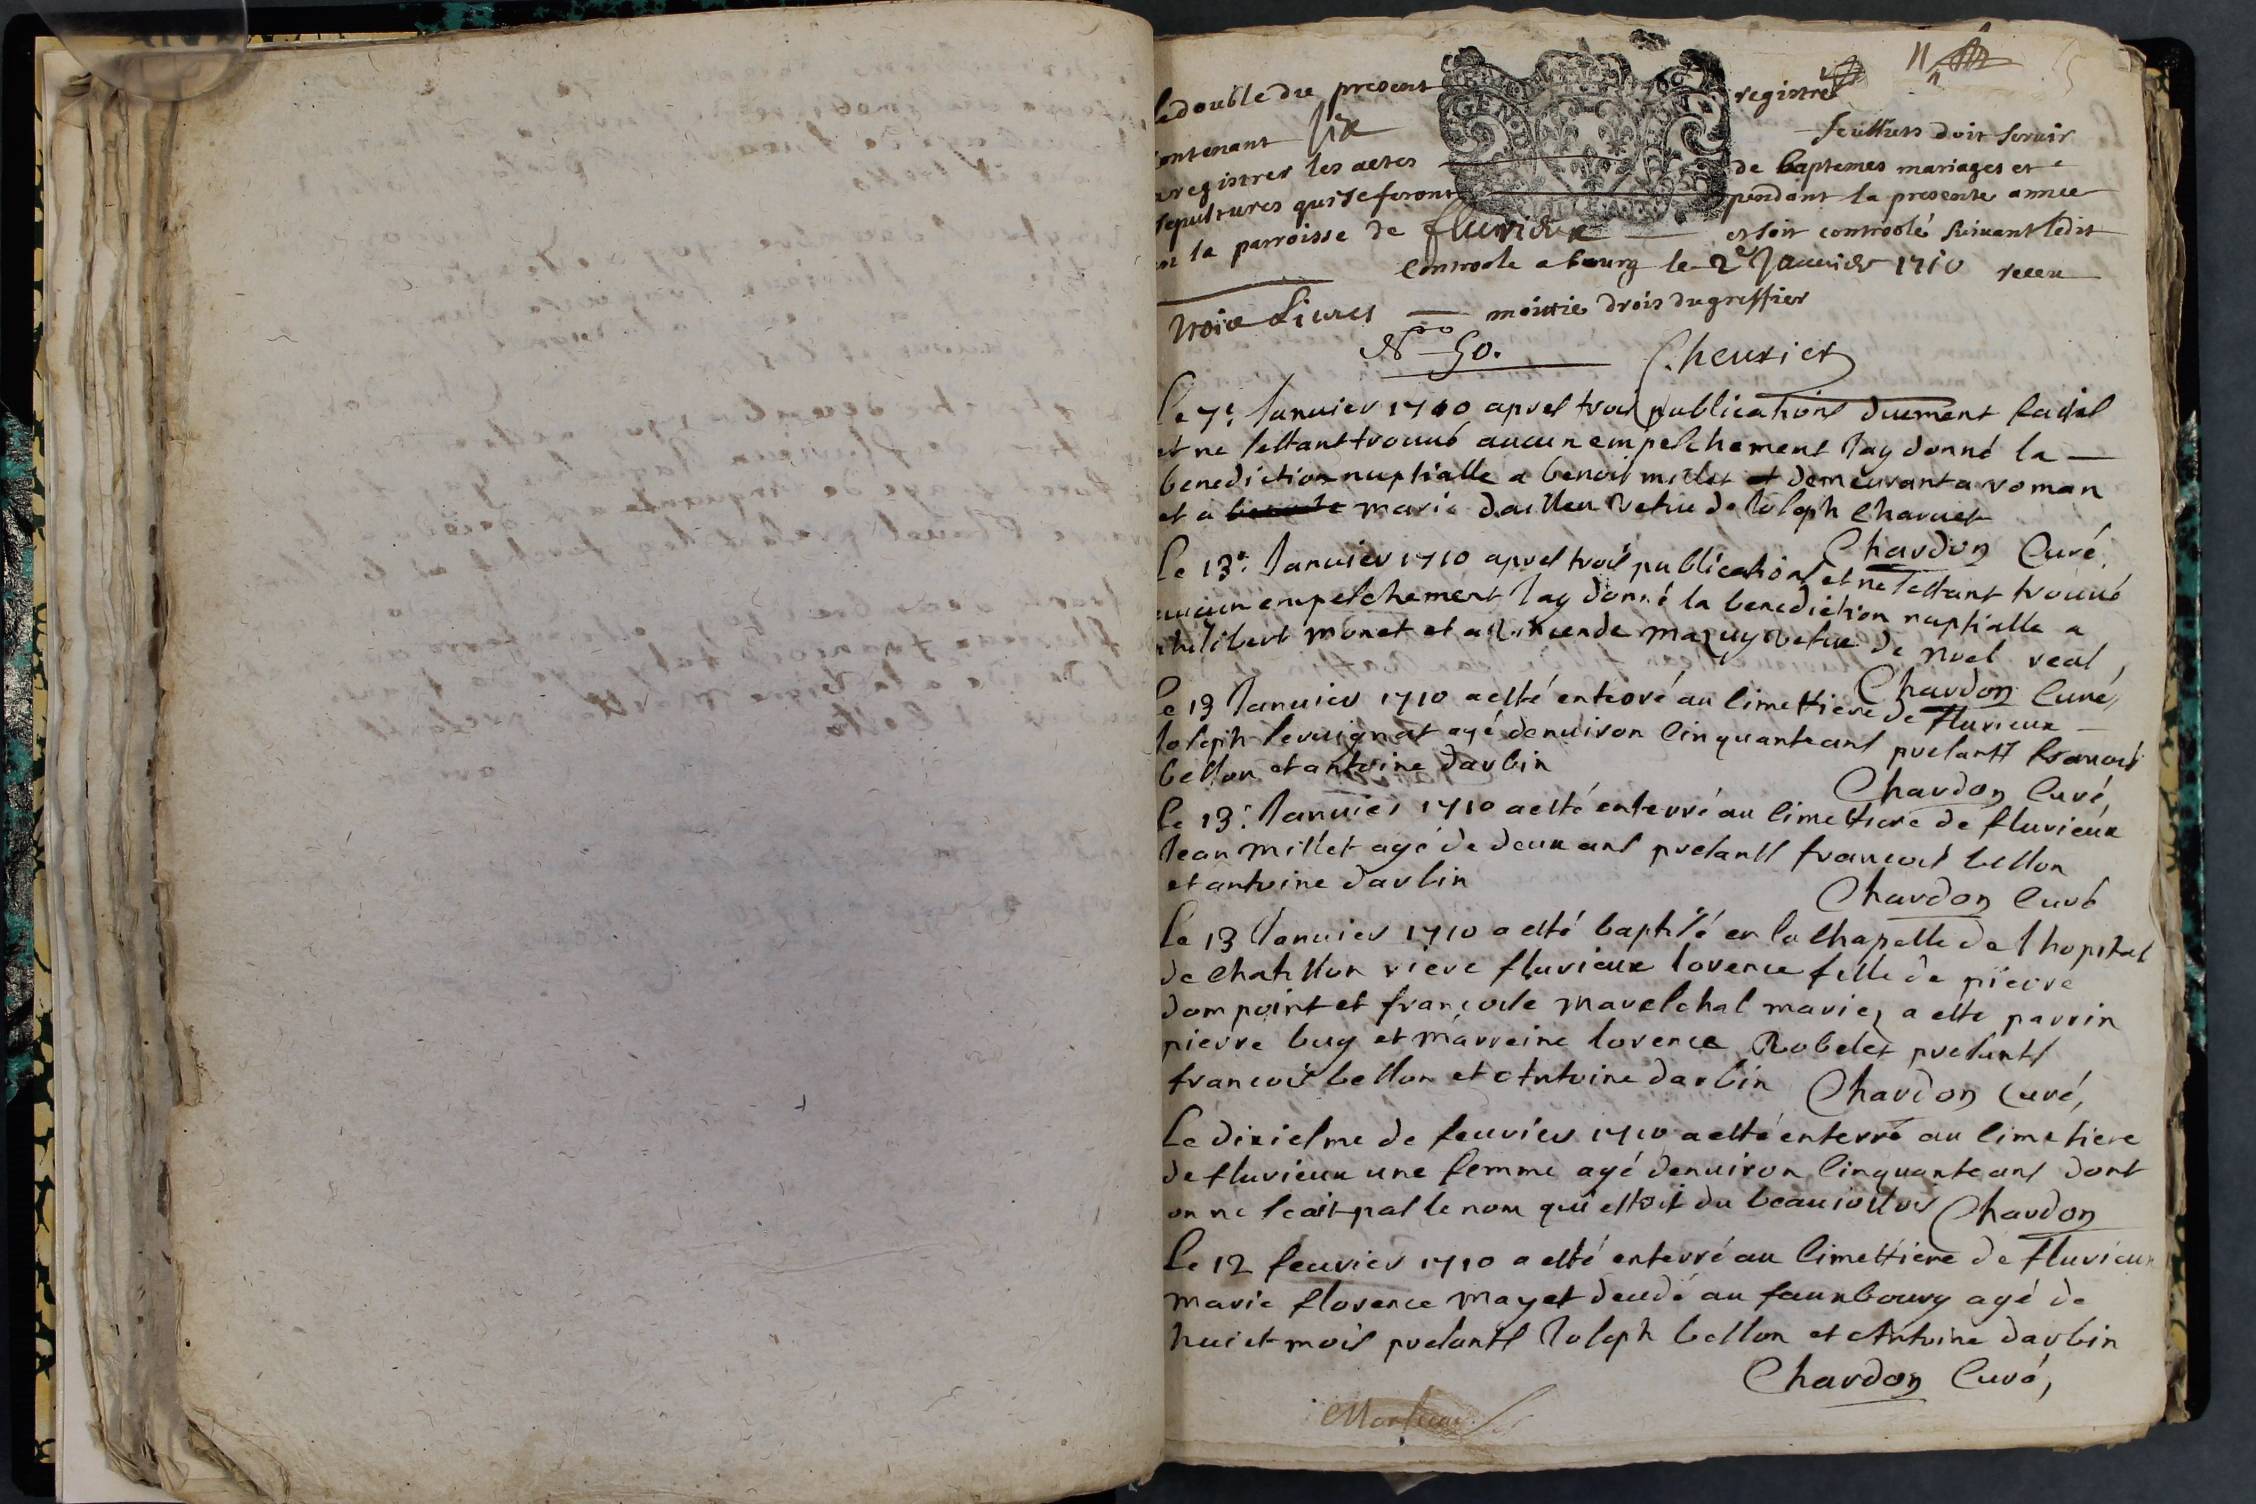 11
le double du present registre
contenant six feuillets doit servir
enregistrer les actes de baptemes mariages et
sepultures qui se feront pendant la presente annee
en la parroisse de fluvieux et soit controolé suivant ledit
controole a bourg le 2e Janvier 1710 receu
trois Livres moittie drois du greffier
No 50. Cheurier
Le 7e Januier 1710 apres trois publications duement faites
et ne sestant trouué aucun empeschement Jay donné la
benediction nuptialle a benoit millet et demeurant a roman
et a marie dailleu vefue de Joseph Charuet
Chardon Curé,
Le 13e Januier 1710 apres trois publications et ne sestant trouué
aucun empeschement Jay donné la benediction nuptialle a
philibert monet et a vefue de noel real,
Chardon Curé,
Le 13 Januier 1710 a esté enterré au cimettiere de fluvieux
Joseph leruignat agé denuiron cinquante ans presants francois
bellon et antoine darbin
Chardon Curé,
Le 13e Januier 1710 a esté enterré au cimettiere de fluvieux
Jean millet agé de deux ans presants francois bellon
et antoine darbin
Chardon Curé
Le 13 Januier 1710 a esté baptisé en la Chapelle de lhopital
de Chatillon riere fluvieux lorence fille de pierre
dompoint et francoise mareschal mariez a esté parrin
pierre buy et marreine lorence Robelet presants
francois bellon et Antoine darbin Chardon Curé,
Le dixiesme de feurier 1710 a esté enterré au cimetiere
de fluvieux une femme agé denuiron cinquante ans dont
on ne scait pas le nom qui estoit du beaujollois Chardon
Le 12 feurier 1710 a esté enterré au cimettiere de fluvieux
marie florence mayet decedé au fauxbourg agé de
huict mois presants Joseph bellon et Antoine darbin
Chardon Curé,